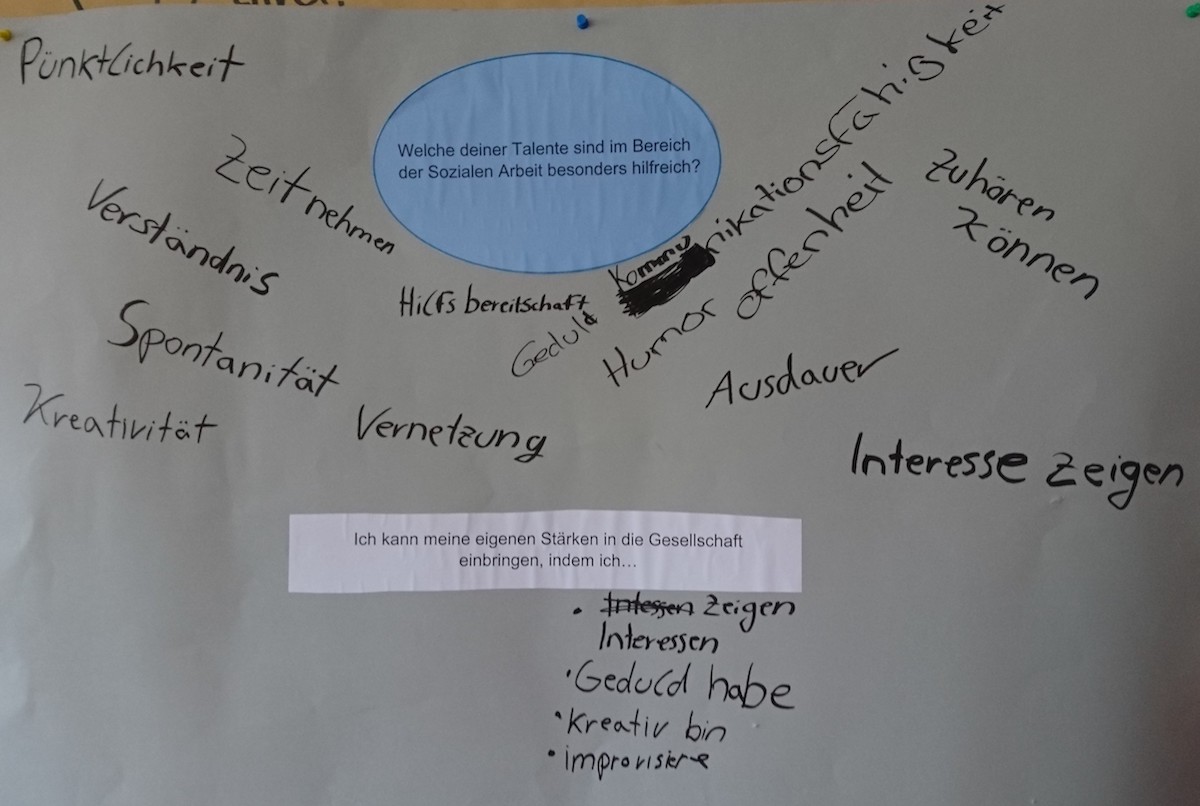 Pünktlichkeit
Welche deiner Talente sind im Bereich
der Sozialen Arbeit besonders hilfreich?
Zeit nehmen
Verständnis
Hilfsbereitschaft
Kommunikationsfähigkeit
Zuhören
Können
Geduld
Humor
offenheit
Spontanität
Ausdauer
Kreativität
Vernetzung
Interesse zeigen
Ich kann meine eigenen Stärken in die Gesellschaft
einbringen, indem ich…
• Zeigen
Interessen
• Geduld habe
• Kreativ bin
• improvisiere